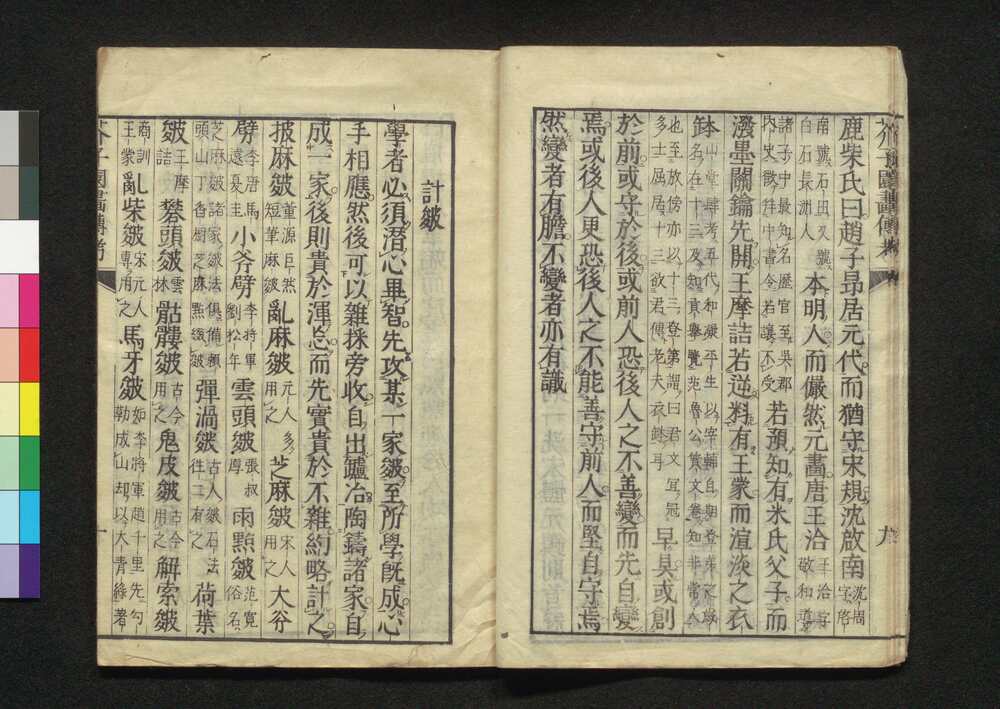 芥子園畫傳 九
鹿柴氏曰趙子昂居元代而猶守宋規沈啟南沈周字啓
南號石田又號白石長洲人本明人而儼然元畫唐王洽王洽字敬和導
諸子中最知名歷官至吳郡內史徵拜中書令若讓不受若預知有米氏父子而
潑墨關鑰先開王摩詰若逆料有王蒙而渲淡之衣
鉢山堂肆考五代和凝平生以宰輔自期登第之歲名在十三及知貢舉覽范魯公質文卷知非常人
也至放傍亦以十三登第謂曰君文宜冠多士屈居十三欲君傳老夫衣鉢耳早具或創
於前或守於後或前人恐後人之不善變而先自變
焉或後人更恐後人之不能善守前人而堅自守焉
然變者有膽不變者亦有識
計皴
學者必須潛心畢智先攻某一家皴至所學既成心
手相應然後可以雜採旁收自出鑪冶陶鑄諸家自
成一家後則貴於渾忘而先實貴於不雜約略計之
披麻皴董源巨然短筆麻皴亂麻皴元人多用之芝麻皴宋人用之大斧
劈李唐馬遠夏圭小斧劈李將軍劉松年雲頭皴張叔厚雨點皴范寬俗名
芝麻皴諸家皴法俱備頭山丁香樹芝麻點綴皴彈渦皴古人皴石法往々有之荷葉
皴王摩詰礬頭皴雲林骷髏皴古今用之鬼皮皴古今用之解索皴
商訓王蒙亂柴皴宋元人専用之馬牙皴如李將軍趙千里先勾勒成山却以大青綠著
芥子園畫傳 十